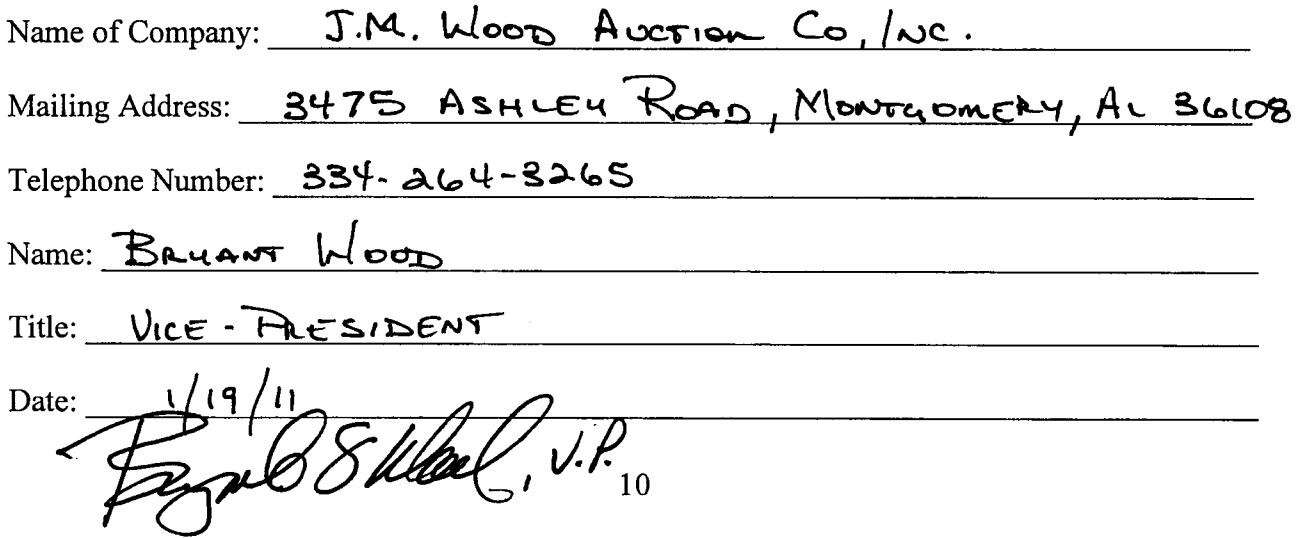 Name of Company: J.M. Wood Auction Co, Inc.
Mailing Address: 3475 Ashley Road, Montgomery, AL 36108
Telephone Number: 334-264-3265
Name: Bryant Wood
Title: Vice-President
Date: 1/19/11
V.P.
10